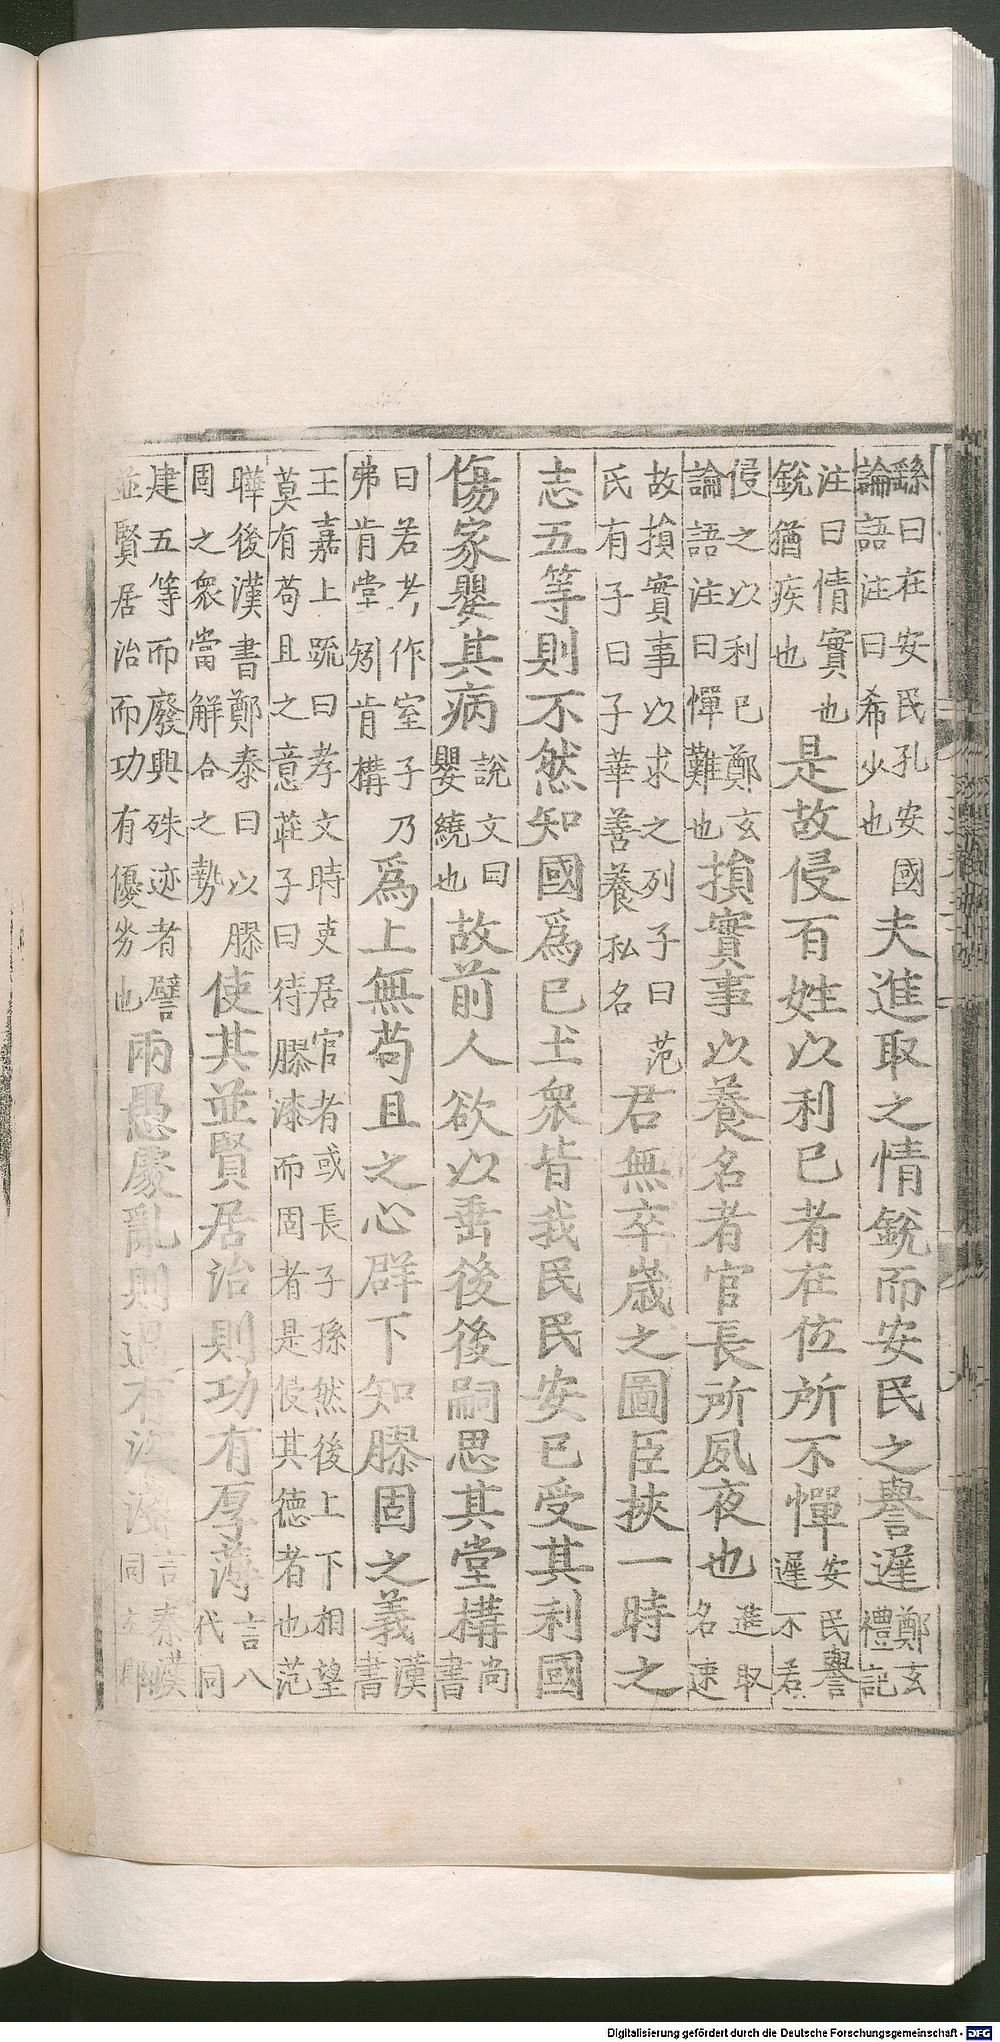 繇曰在安民孔安國論語注曰希少也夫進取之情銳而安民之譽遲鄭玄禮記
注曰情實也銳猶疾也是故侵百姓以利己者在位所不憚安民譽遲不若
侵之以利己鄭玄論語注曰憚難也損實事以養名者官長所夙夜也進取名速
故損實事以求之列子曰范氏有子曰子華善養私名君無卒歲之圖臣挾一時之
志五等則不然知國爲己土衆皆我民民安己受其利國
傷家嬰其病說文曰嬰繞也故前人欲以垂後後嗣思其堂構尚書
曰若考作室子乃弗肯堂矧肯構爲上無苟且之心群下知膠固之義漢書
王嘉上疏曰孝文時吏居官者或長子孫然後上下相望莫有苟且之意莊子曰待膠漆而固者是侵其德者也范
曄後漢書鄭泰曰以膠固之衆當解合之勢使其並賢居治則功有厚薄言八代同
建五等而廢興殊迹者譬並賢居治而功有優劣也兩愚處亂則過有淺言秦漢同
Digitalisierung gefördert durch die Deutsche Forschungsgemeinschaft - DFG